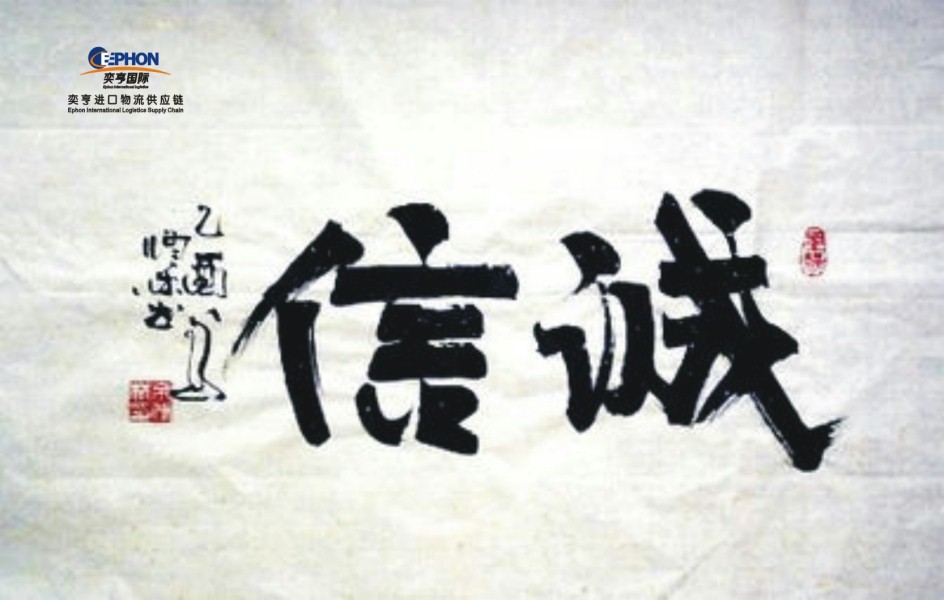 EPHON
奕亨国际
Ephon International Logistics
奕亨进口物流供应链
Ephon International Logistics Supply Chain
诚信
乙酉